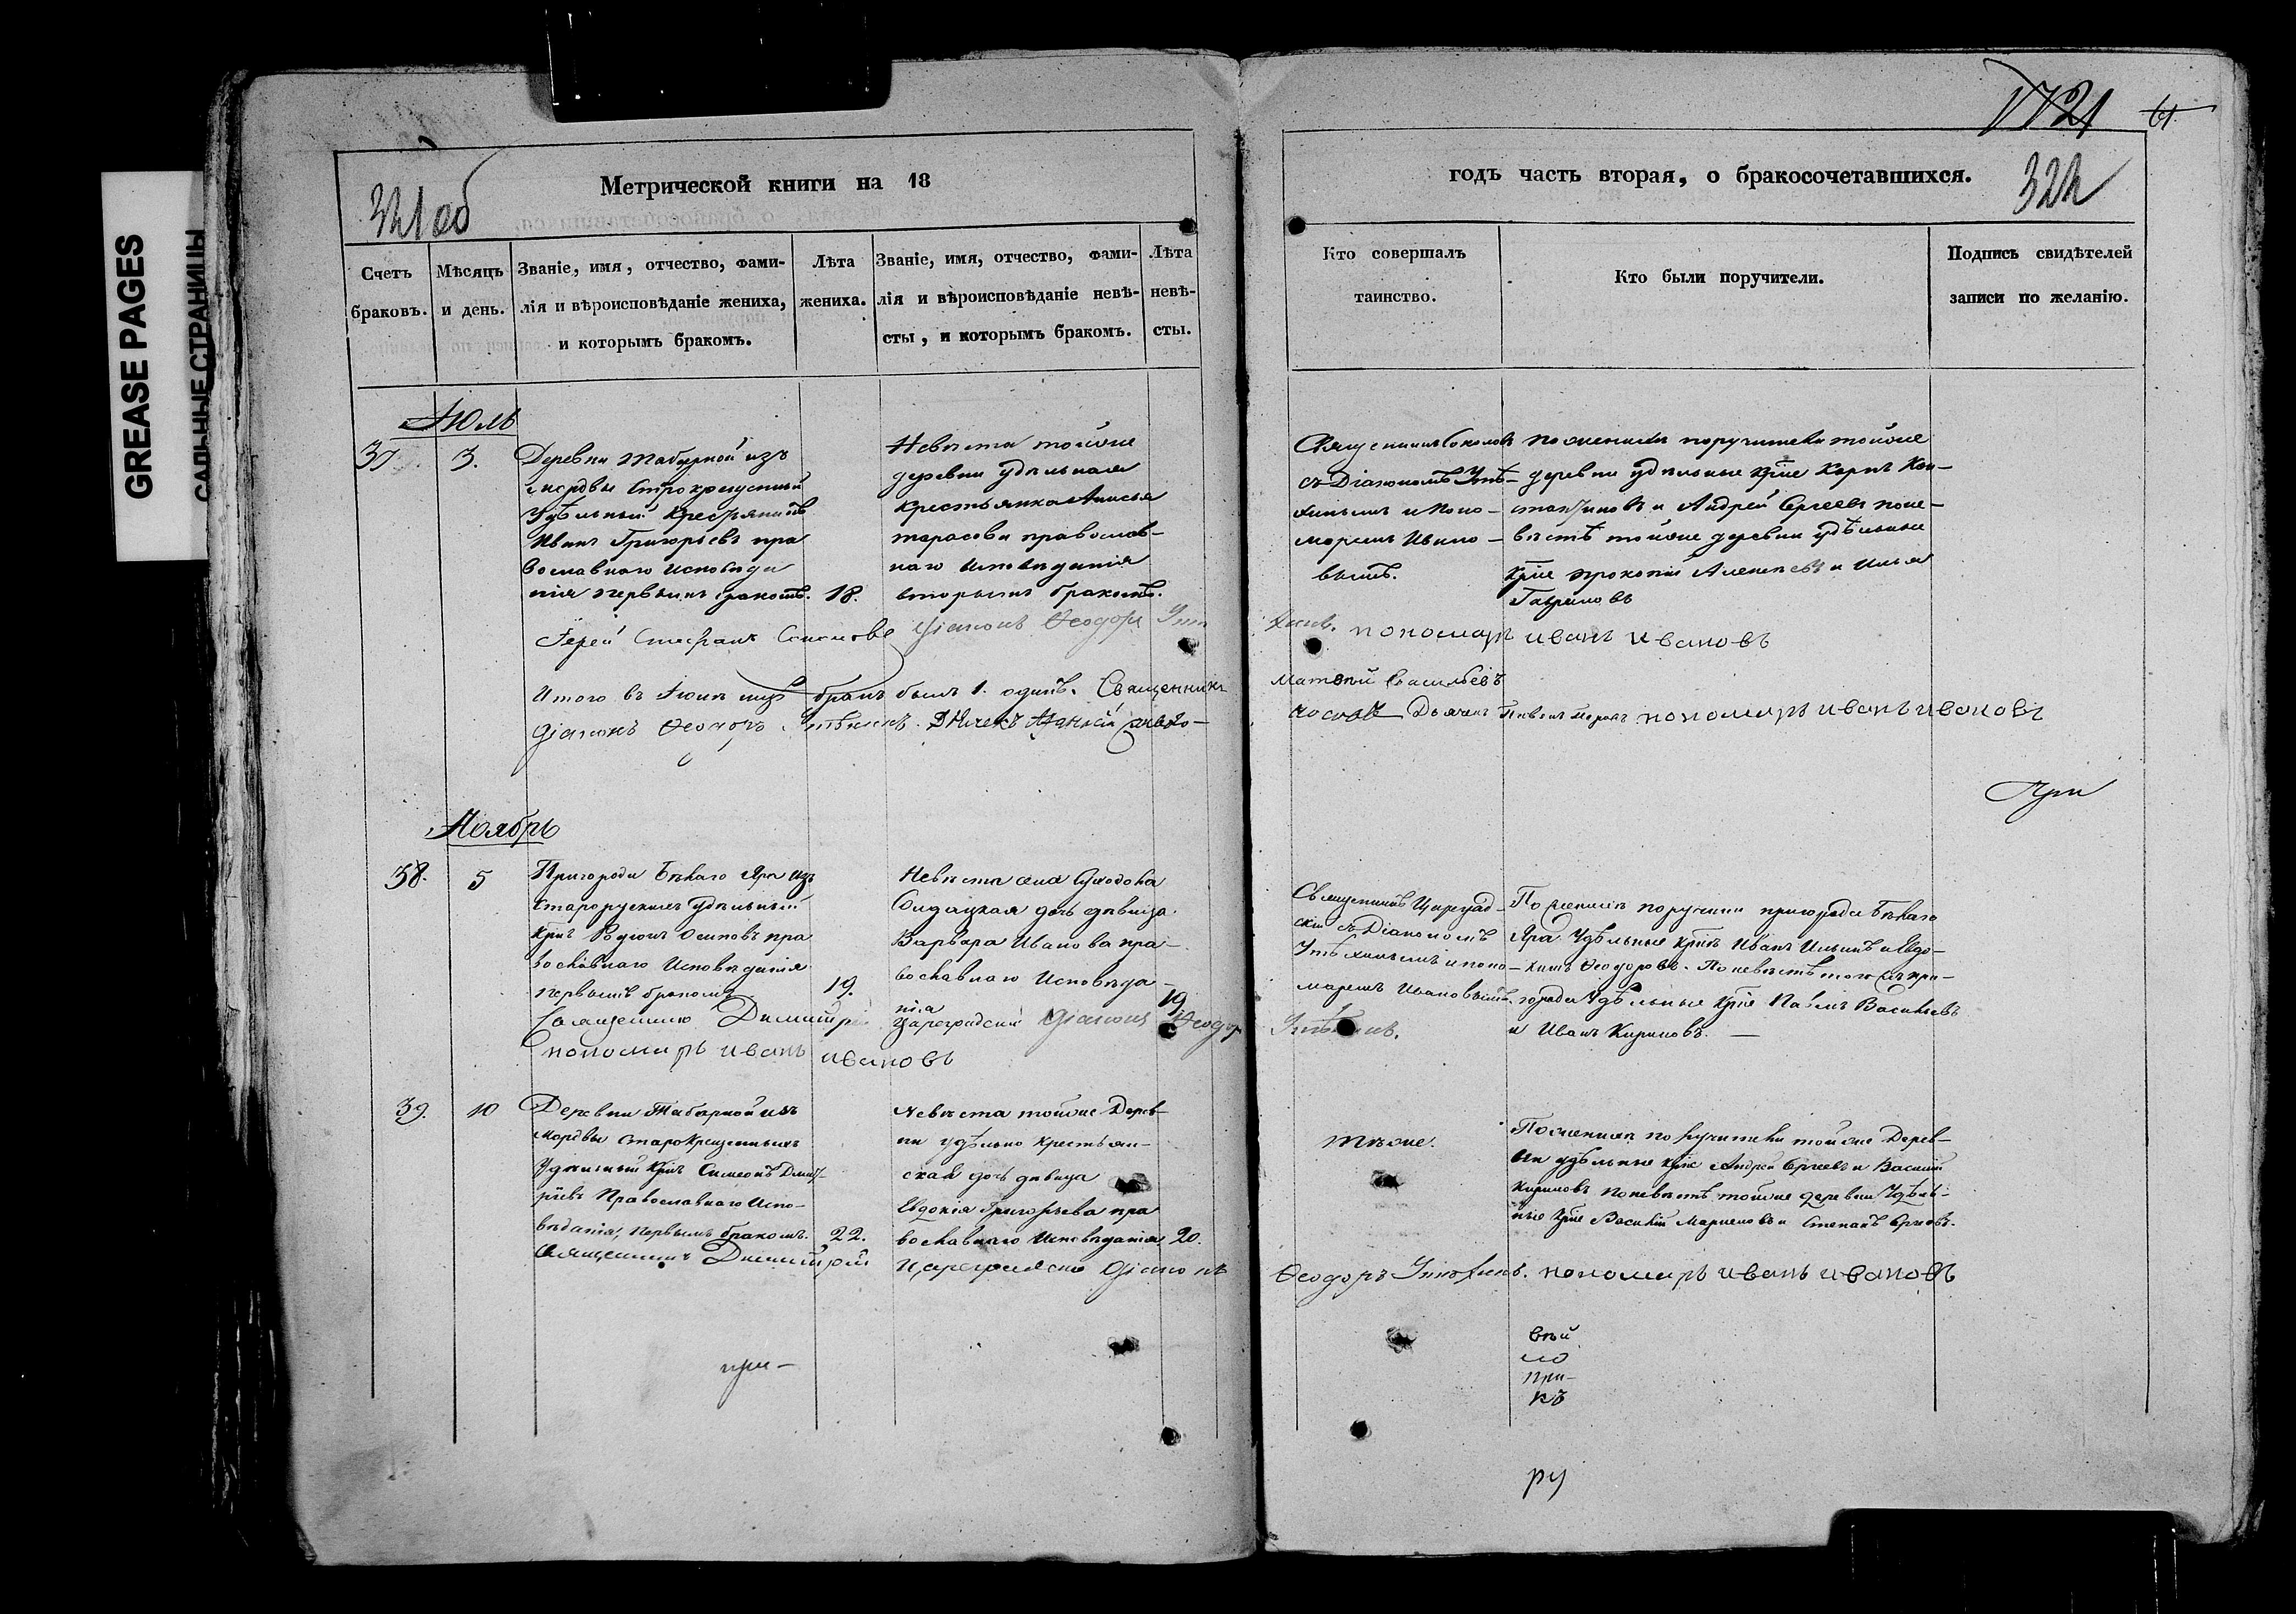 GREASE PAGES
САЛЬНЫЕ СТРАНИЦЫ
321 об
Метрической книги на 18
Счетъ браковъ.
Мѣсяцъ и день.
Званіе, имя, отчество, фами-
лія и вѣроисповѣданіе жениха,
и которымъ бракомъ.
Лѣта жениха.
Званіе, имя, отчество, фами-
лія и вѣроисповѣданіе невѣ-
сты, и которымъ бракомъ.
Лѣта невѣ-
сты.
Іюль
37. 3.
Деревни Табурной изъ
мордвы Старокрещеный
Удѣльный Крестьянинъ
Иванъ Григорьевъ пра
вославнаго исповѣда
нія первымъ бракомъ. 18.
Невѣста тойже
деревни удѣльная
крестьянка Анисья
тарасова православ-
наго исповѣданія
вторымъ бракомъ.
Іерей Стефанъ Соколовъ Діаконъ Ѳеодоръ Утѣ
Итого въ Іюлѣ мцѣ бракъ былъ 1. одинъ. Священникъ
Діаконъ Ѳеодоръ Утѣхинъ. Дьячекъ
Ноябрь
38. 5
Пригорода Бѣлаго Яра изъ
старорускихъ удѣльный
Крнъ Родіонъ Осиповъ пра
вославнаго исповѣданія
первымъ бракомъ 19.
Невѣста села Суходола
Солдацкая дочь дѣвица
Варвара Иванова пра-
вославнаго исповѣда-
нія 19
Священникъ Димитрій Цареградскій Діаконъ Ѳеодор
пономарь иванъ ивановъ
39. 10
Деревни Табурной изъ
мордвы старокрещенныхъ
Удѣльный Крнъ Симеонъ Дмит-
ріевъ Православнаго Испо-
вѣданія, первымъ бракомъ. 22.
невѣста тойже Дерев-
ни удѣльно крестьян-
ская дочь дѣвица
Евдокія Григорьева пра
вославнаго исповѣданія 20.
Священникъ Димитрій Цареградскій Діаконъ
при-
1721 61
322
годъ часть вторая, о бракосочетавшихся.
Кто совершалъ таинство.
Кто были поручители.
Подпись свидѣтелей
записи по желанію.
Священникъ Соколовъ
съ Діакономъ Утѣ-
хинымъ и Поно-
маремъ Ивано-
вымъ.
по женихѣ поручители тойже
деревни удѣльные Крне Карпъ Кон-
стантиновъ и Андрей Сергеевъ поне-
вѣстѣ тойже деревни удѣльные
Крне прокопій Алексеевъ и Илья
Гавриловъ
хинъ. пономарь иванъ ивановъ
Матвѣй Васильевъ
пономарь иванъ ивановъ
При
Священникъ Цареград-
скій съ Діакономъ
Утѣхинымъ и поно-
маремъ Ивановымъ.
По женихѣ поручители пригорода Бѣлаго
Яра Удѣльные Крне Иванъ Ильинъ и Евдо-
кимъ Ѳеодоровъ. По невѣстѣ того же при-
города Удѣльные Крне Павелъ Васильевъ
и Иванъ Кириловъ.
Утѣхинъ.
тѣже.
По женихѣ поручители тойже Дерев-
ни удѣльные Крне Андрей Сергеевъ и Василій
Кириловъ по невѣстѣ тойже деревни Удѣль-
ные Крне Василій и Степанъ
Ѳеодоръ Утѣхинъ. пономарь иванъ ивановъ
вѣй
ло
при-
къ
ру